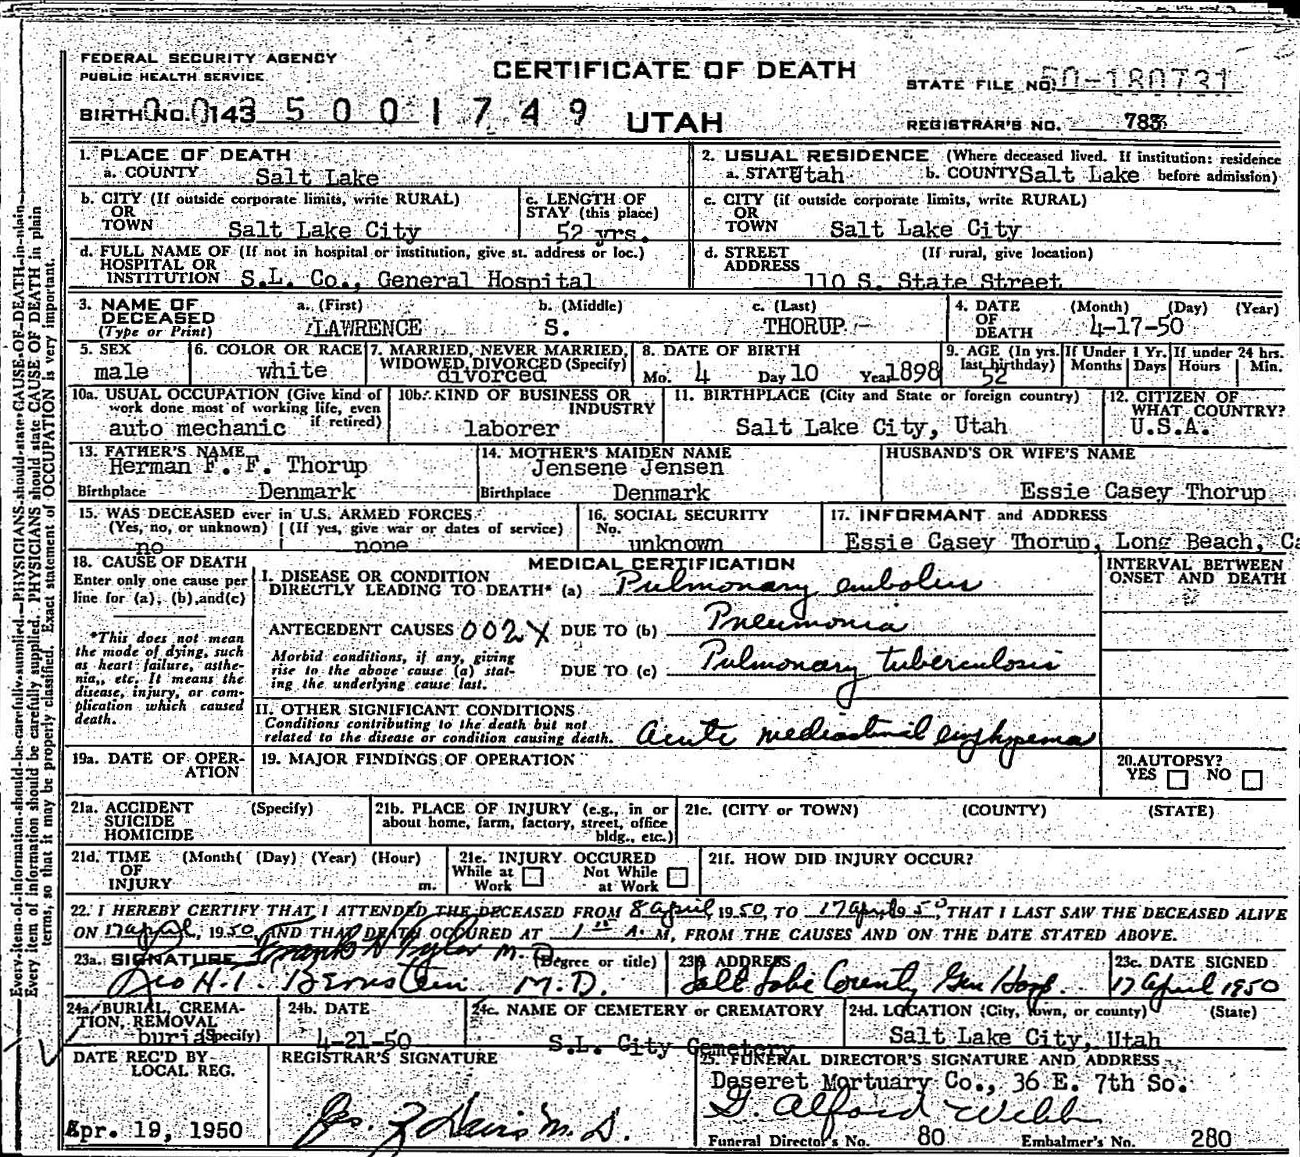 FEDERAL SECURITY AGENCY
PUBLIC HEALTH SERVICE
CERTIFICATE OF DEATH
STATE FILE NO. 50-180731
BIRTH NO. 0143 5 0 0 1 7 4 9
UTAH
REGISTRAR'S NO. 783
1. PLACE OF DEATH
a. COUNTY Salt Lake
2. USUAL RESIDENCE (Where deceased lived. If institution: residence
a. STATE Utah b. COUNTY Salt Lake before admission)
b. CITY (If outside corporate limits, write RURAL)
OR
TOWN Salt Lake City
c. LENGTH OF
STAY (this place)
52 yrs.
c. CITY (if outside corporate limits, write RURAL)
OR
TOWN Salt Lake City
d. FULL NAME OF (If not in hospital or institution, give st. address or loc.)
HOSPITAL OR
INSTITUTION S.L. Co., General Hospital
d. STREET (If rural, give location)
ADDRESS 110 S. State Street
3. NAME OF DECEASED (Type or Print)
a. (First) b. (Middle) c. (Last)
LAWRENCE S. THORUP
4. DATE OF DEATH (Month) (Day) (Year)
4-17-50
5. SEX
male
6. COLOR OR RACE
white
7. MARRIED, NEVER MARRIED,
WIDOWED, DIVORCED (Specify)
divorced
8. DATE OF BIRTH
Mo. 4 Day 10 Year 1898
9. AGE (In yrs. last birthday)
52
If Under 1 Yr. Months Days
If under 24 hrs. Hours Min.
10a. USUAL OCCUPATION (Give kind of
work done most of working life, even
if retired)
auto mechanic
10b. KIND OF BUSINESS OR
INDUSTRY
laborer
11. BIRTHPLACE (City and State or foreign country)
Salt Lake City, Utah
12. CITIZEN OF
WHAT COUNTRY?
U.S.A.
13. FATHER'S NAME
Herman F. F. Thorup
Birthplace Denmark
14. MOTHER'S MAIDEN NAME
Jensene Jensen
Birthplace Denmark
HUSBAND'S OR WIFE'S NAME
Essie Casey Thorup
15. WAS DECEASED ever in U.S. ARMED FORCES
(Yes, no, or unknown) (If yes, give war or dates of service)
no none
16. SOCIAL SECURITY
No.
unknown
17. INFORMANT and ADDRESS
Essie Casey Thorup, Long Beach, Ca
18. CAUSE OF DEATH
Enter only one cause per
line for (a), (b), and (c)
*This does not mean
the mode of dying, such
as heart failure, asthe-
nia,, etc. It means the
disease, injury, or com-
plication which caused
death.
MEDICAL CERTIFICATION
INTERVAL BETWEEN
ONSET AND DEATH
I. DISEASE OR CONDITION
DIRECTLY LEADING TO DEATH* (a) Pulmonary embolus
ANTECEDENT CAUSES 002X DUE TO (b) Pneumonia
Morbid conditions, if any, giving
rise to the above cause (a) stat-
ing the underlying cause last.
DUE TO (c) Pulmonary tuberculosis
II. OTHER SIGNIFICANT CONDITIONS
Conditions contributing to the death but not
related to the disease or condition causing death.
Acute mediastinal emphysema
19a. DATE OF OPER-
ATION
19. MAJOR FINDINGS OF OPERATION
20. AUTOPSY?
YES NO
21a. ACCIDENT (Specify)
SUICIDE
HOMICIDE
21b. PLACE OF INJURY (e.g., in or
about home, farm, factory, street, office
bldg., etc.)
21c. (CITY or TOWN) (COUNTY) (STATE)
21d. TIME (Month( (Day) (Year) (Hour)
OF
INJURY m.
21e. INJURY OCCURED
While at Work Not While at Work
21f. HOW DID INJURY OCCUR?
22. I HEREBY CERTIFY THAT I ATTENDED THE DECEASED FROM 8 April, 1950, TO 17 April 1950, THAT I LAST SAW THE DECEASED ALIVE
ON 17 april, 1950, AND THAT DEATH OCCURED AT 1 15 A. M, FROM THE CAUSES AND ON THE DATE STATED ABOVE.
23a. SIGNATURE (Degree or title)
Frank H Tyler M.D.
Geo H.I. Bernstein M.D.
23b. ADDRESS
Salt Lake County Gen Hosp.
23c. DATE SIGNED
17 April 1950
24a. BURIAL, CREMA-
TION, REMOVAL
(Specify)
burial
24b. DATE
4-21-50
24c. NAME OF CEMETERY or CREMATORY
S.L. City Cemetery
24d. LOCATION (City, town, or county) (State)
Salt Lake City, Utah
DATE REC'D BY
LOCAL REG.
Apr. 19, 1950
REGISTRAR'S SIGNATURE
M.D.
25. FUNERAL DIRECTOR'S SIGNATURE AND ADDRESS
Deseret Mortuary Co., 36 E. 7th So.
G. Alford Webb
Funeral Director's No. 80 Embalmer's No. 280
Every item of information should be carefully supplied. PHYSICIANS should state CAUSE OF DEATH in plain
Every item of information should be carefully supplied. PHYSICIANS should state CAUSE OF DEATH in plain
terms, so that it may be properly classified. Exact statement of OCCUPATION is very important.